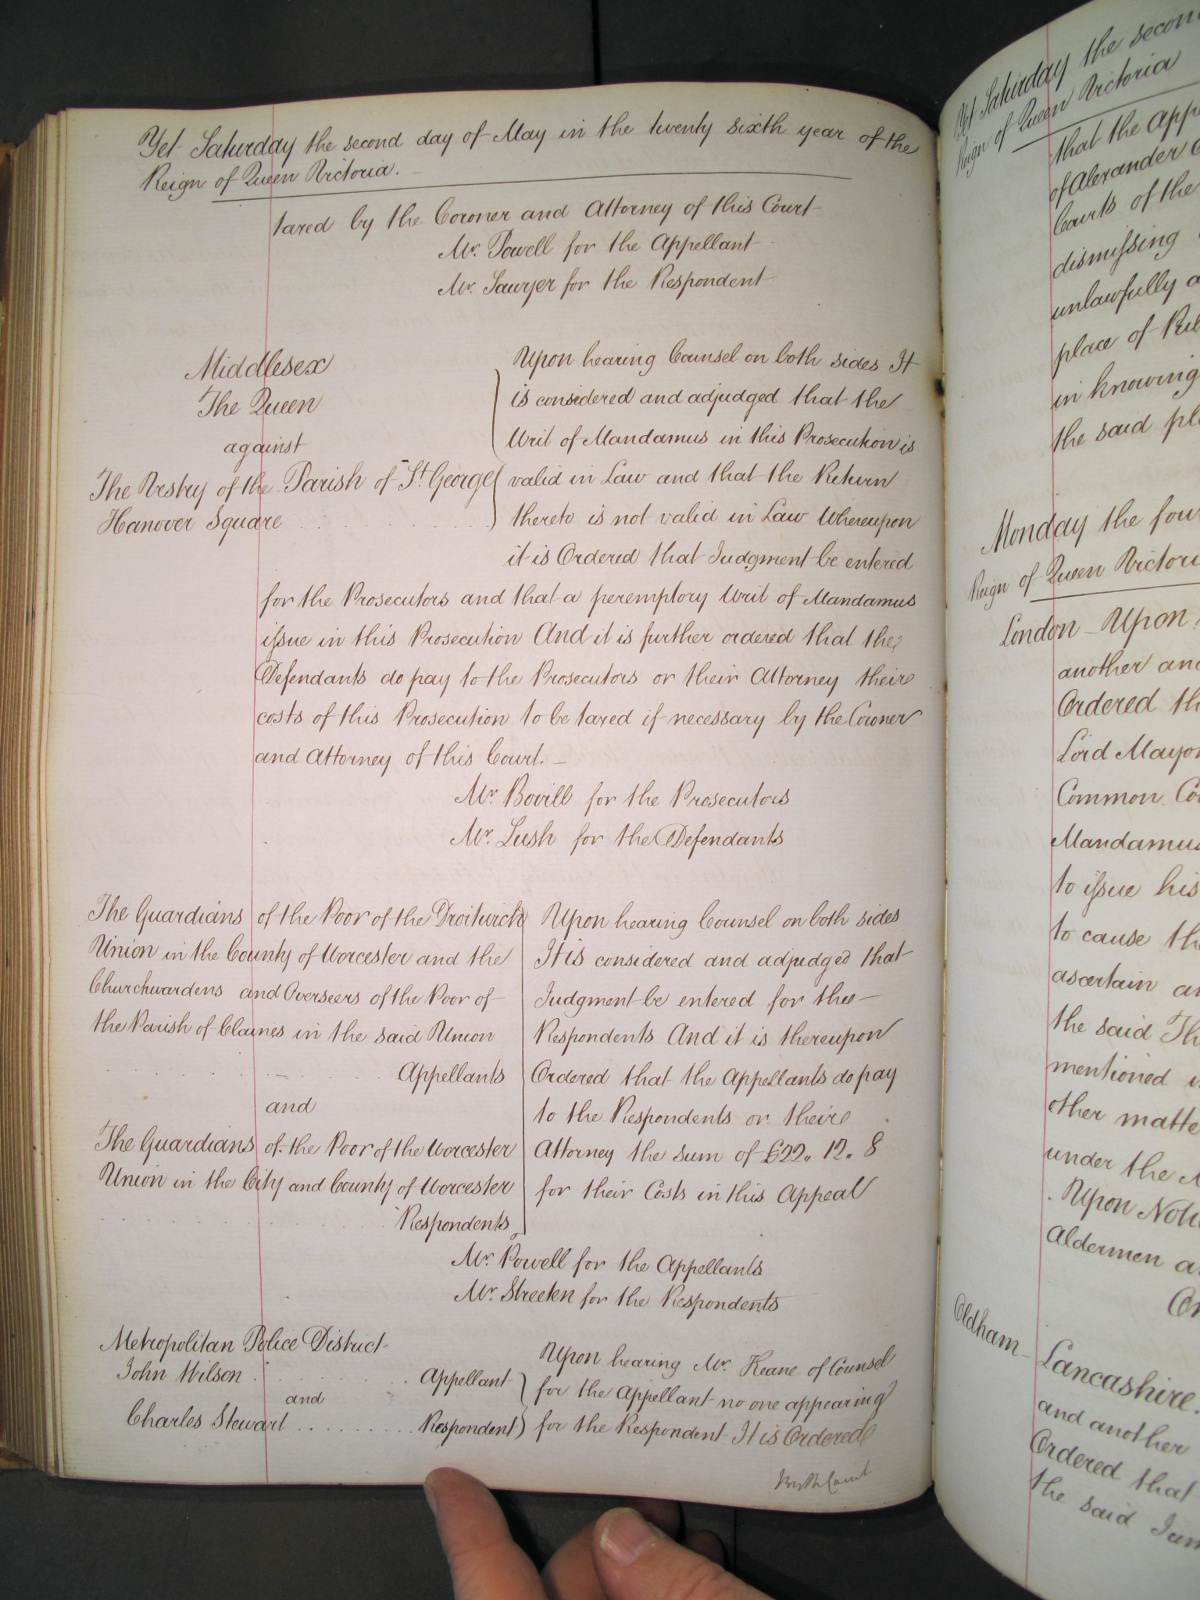 Yet Saturday the second day of May in the twenty sixth year of the
Reign of Queen Victoria.
taxed by the Coroner and Attorney of this Court
Mr. Powell for the Appellant
Mr. Sawyer for the Respondent
Middlesex
The Queen
against
The Vestry of the Parish of St. George
Hanover Square
Upon hearing Counsel on both sides It
is considered and adjudged that the
Writ of Mandamus in this Prosecution is
valid in Law and that the Return
thereto is not valid in Law Whereupon
it is Ordered that Judgment be entered
for the Prosecutors and that a peremptory Writ of Mandamus
issue in this Prosecution And it is further ordered that the
Defendants do pay to the Prosecutors or their Attorney their
costs of this Prosecution to be taxed if necessary by the Coroner
and Attorney of this Court.
Mr. Bovill for the Prosecutors
Mr. Lush for the Defendants
The Guardians of the Poor of the Droitwich
Union in the County of Worcester and the
Churchwardens and Overseers of the Poor of
the Parish of Claines in the said Union
Appellants
and
The Guardians of the Poor of the Worcester
Union in the City and County of Worcester
Respondents
Upon hearing Counsel on both sides
It is considered and adjudged that
Judgment be entered for the
Respondents And it is thereupon
Ordered that the Appellants do pay
to the Respondents or their
Attorney the sum of £22. 12. 8
for their Costs in this Appeal
Mr. Powell for the Appellants
Mr. Streeten for the Respondents
Metropolitan Police District
John Wilson Appellant
and
Charles Stewart Respondent
Upon hearing Mr. Keane of Counsel
for the Appellant no one appearing
for the Respondent It is Ordered
By the Court
Yet Saturday the second
Reign of Queen Victoria
that the App
of Alexander
Courts of the
dismissing
unlawfully a
place of
in knowing
the said pl
Monday the fou
Reign of Queen Victoria
London Upon
another and
Ordered th
Lord Mayor
Common Co
Mandamus
to issue his
to cause th
ascertain an
the said Th
mentioned
other matte
under the
Upon Noti
Aldermen a
Oldham
Lancashire.
and another
Ordered that
the said Jam